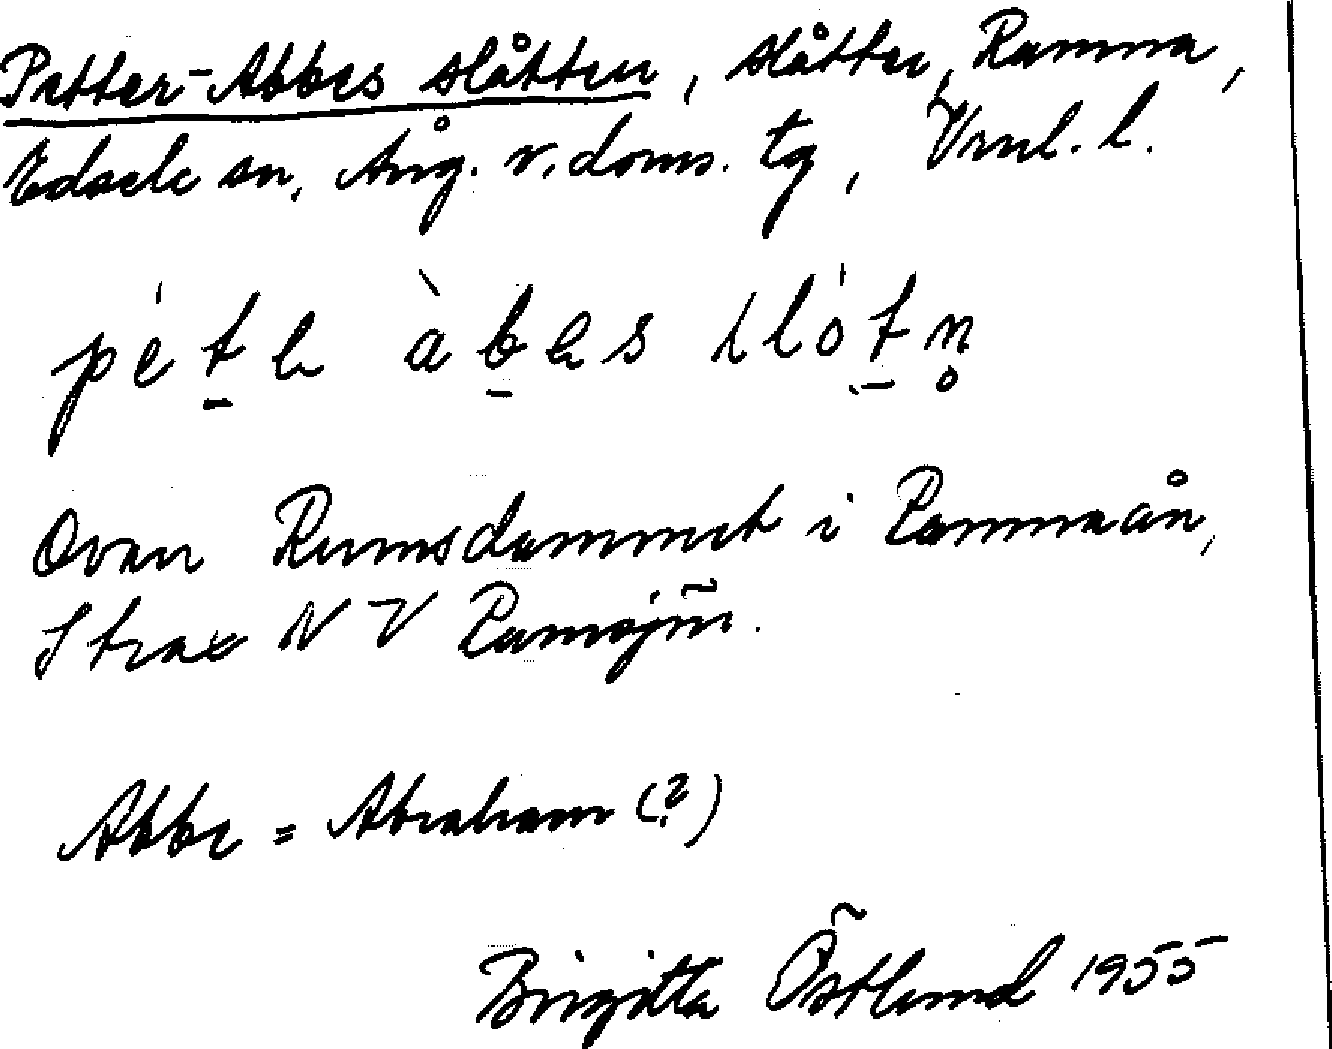 Petter-Abbes slåtten, slåtter, Ramna,
Edsele sn, Ång. v. doms. tg, Vnl. l.
pét̠e àb̠es slót̠n̥
Ovan Rumsdammet i Ramnaån,
Strax NV Ramsjön.
Abbe = Abraham (?)
Birgitta Östlund 1955